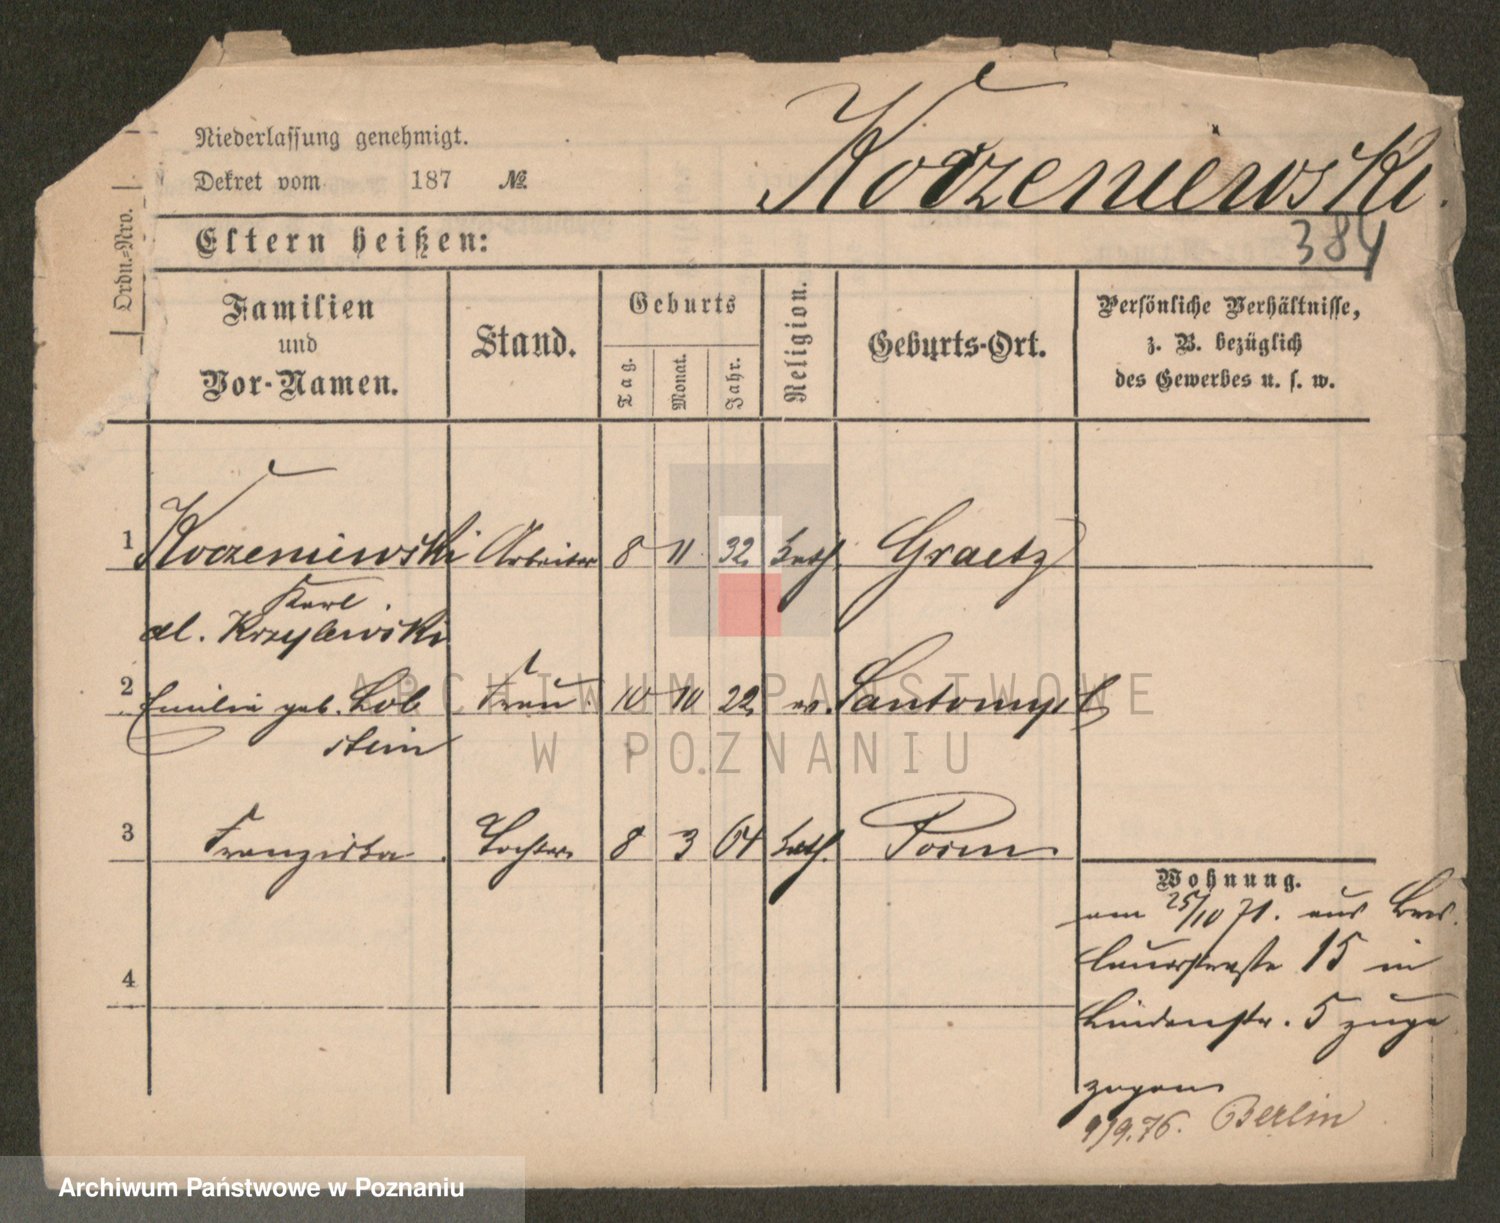 Niederlassung genehmigt.
Dekret vom 187 №
Korzeniewski.
384
Eltern heißen:
Ordn.=Nro.
Familien und Vor-Namen.
Stand.
Geburts
Tag.
Monat.
Jahr.
Religion.
Geburts-Ort.
Persönliche Verhältnisse,
z. B. bezüglich
des Gewerbes u. s. w.
1 Korzeniewski Arbeiter 8 11 32. kath. Graetz
Karl
al.
2 Emilie geb. Lob Frau 10 10 22. ev. Santomysl
stein
3 Franziska. Tochter 8 3 64 kath. Posen
4
Wohnung.
am 25/10 71. aus Bres
lauerstraße 15 in
Lindenstr. 5 zuge
zogen
9/9.76. Berlin
ARCHIWUM PAŃSTWOWE
W POZNANIU
Archiwum Państwowe w Poznaniu